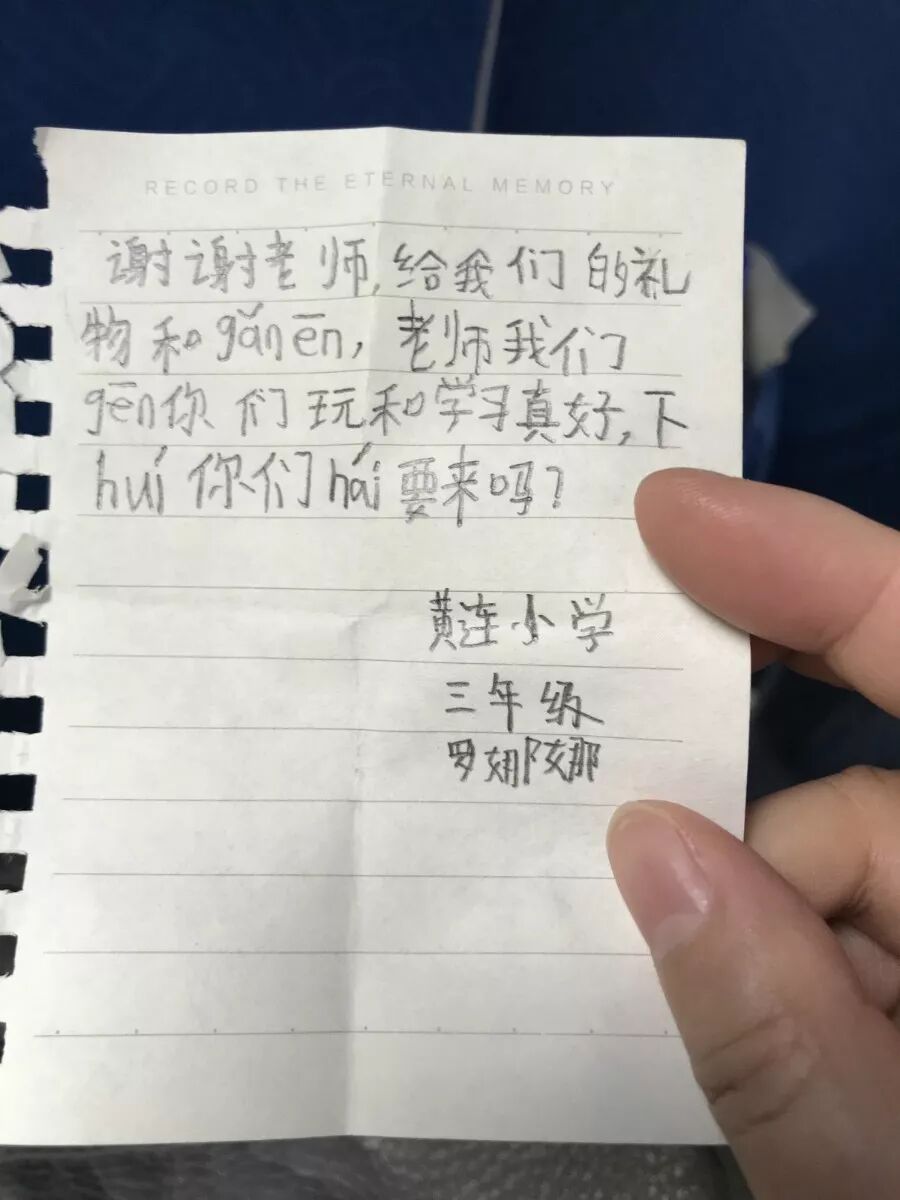 RECORD THE ETERNAL MEMORY
谢谢老师,给我们的礼
物和gǎnēn,老师我们
gēn你们玩和学习真好,下
huí你们hái要来吗?
黄连小学
三年级
罗娜娜